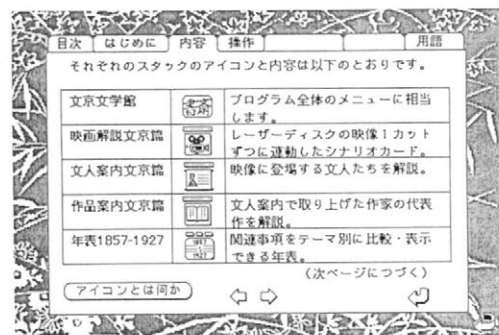 目次 はじめに 内容 操作 用語
それぞれのスタックのアイコンと内容は以下のとおりです。
文京文学館 プログラム全体のメニューに相当
します。
映画解説文京篇 レーザーディスクの映像1カット
ずつに連動したシナリオカード。
文人案内文京篇 映像に登場する文人たちを解説。
作品案内文京篇 文人案内で取り上げた作家の代表
作を解説。
年表1857-1927 1857 1927 関連事項をテーマ別に比較・表示
できる年表。
(次ページにつづく)
アイコンとは何か